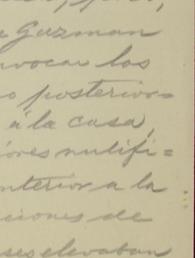 Guzman
vocar los
o posterior=
á la casa,
iones nulifi=
nterior a la
ciones de
ses elevaban